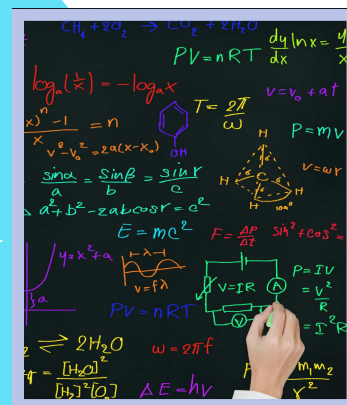 CH₄+2O₂ → CO₂ + 2H₂O
PV=nRT
dy/dx lnx = y/x
logₐ(1/x) = -logₐx
x)ⁿ-1/x = n
T= 2π/ω
v=v₀ + at
v²-v₀²=2a(x-x₀)
OH
P=mv
H
H C H
H 109°
v=ωr
sinα/a = sinβ/b = sinr/c
a²+b²-2abcosr=c²
E=mc²
F= ΔP/Δt
sin²+cos²=
y=x²+a
}a
λ
v=fλ
V=IR
A
V
P=IV
= V²/R
= I²R
PV=nRT
⇌ 2H₂O
ω=2πf
= [H₂O]²/[H₂]²[O₂]
ΔE=hν
F
m₁m₂/r²